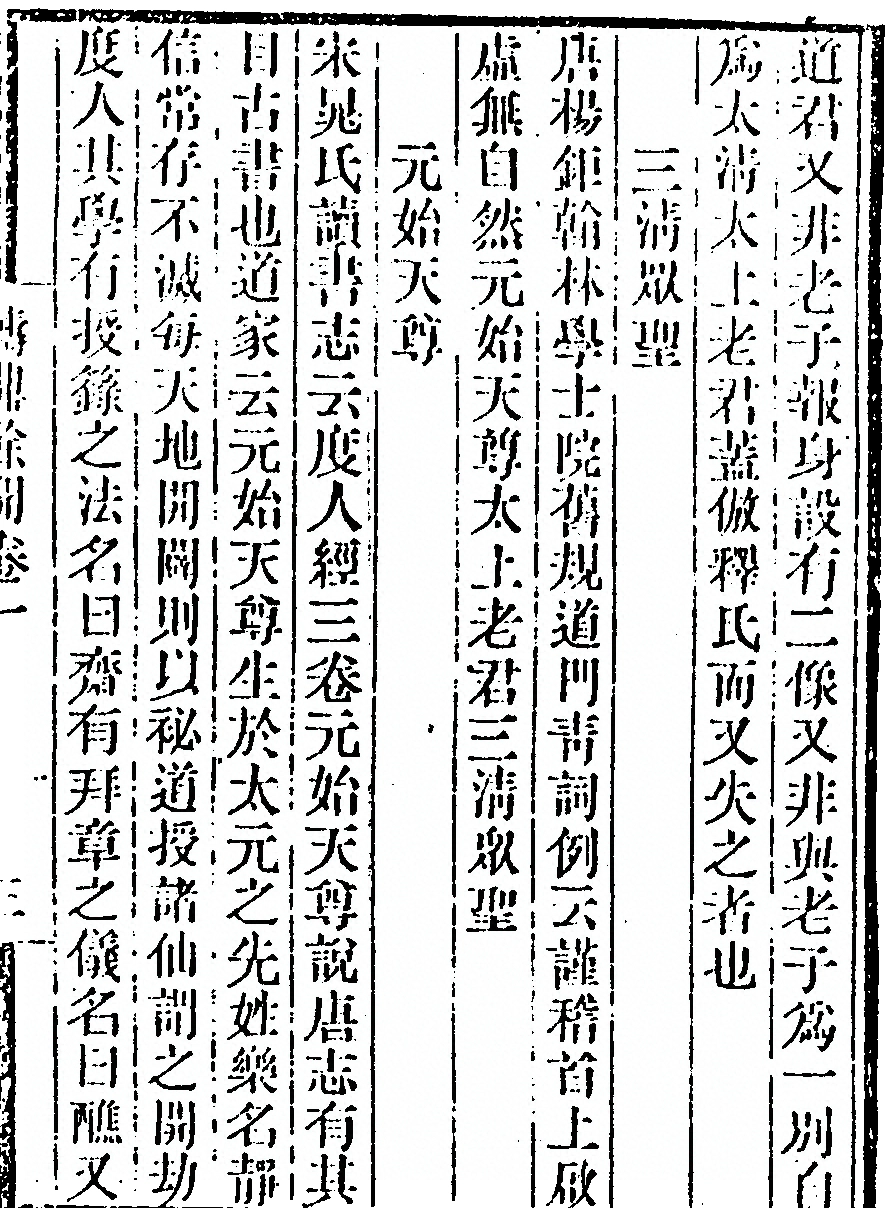 道君又非老子報身設有二像又非與老子爲一別自
爲太淸太上老君蓋倣釋氏而又失之者也
三淸眾聖
唐楊鉅翰林學士院舊規道門靑詞例云謹稽首上啟
虛無自然元始天尊太上老君三淸眾聖
元始天尊
宋晁氏讀書志云度人經三卷元始天尊說唐志有其
目古書也道家云元始天尊生於太元之先姓樂名靜
信常存不滅每天地開闢則以祕道授諸仙謂之開劫
度人其學有授籙之法名曰齋有拜章之儀名曰醮又
餘聞卷一
三